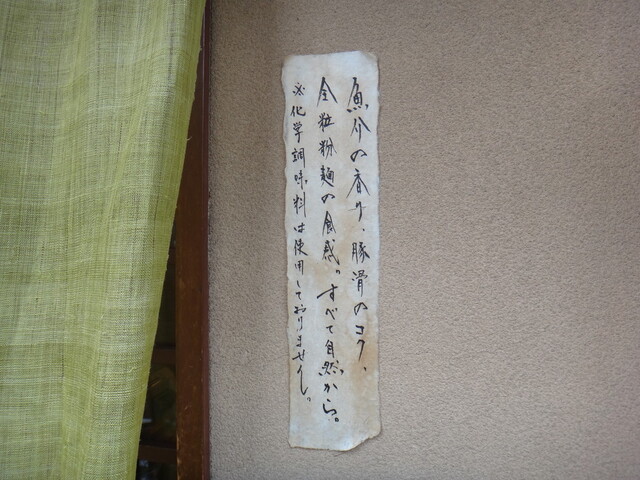 魚介の香り、豚骨のコク、
全粒粉麺の食感。すべて自然から。
※化学調味料は使用しておりません。